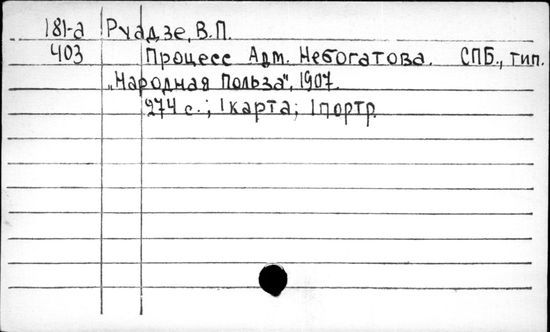 181-а Руадзе, В.П.
403 Процесс Адм. Небогатова. СПБ., тип.
„Народная Польза", 1907.
274 с.; 1 карта; 1 портр.